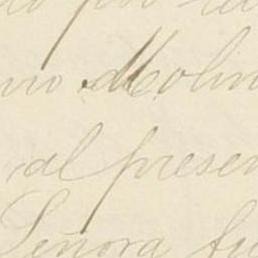 por
no Molin
al presen
Señora fu